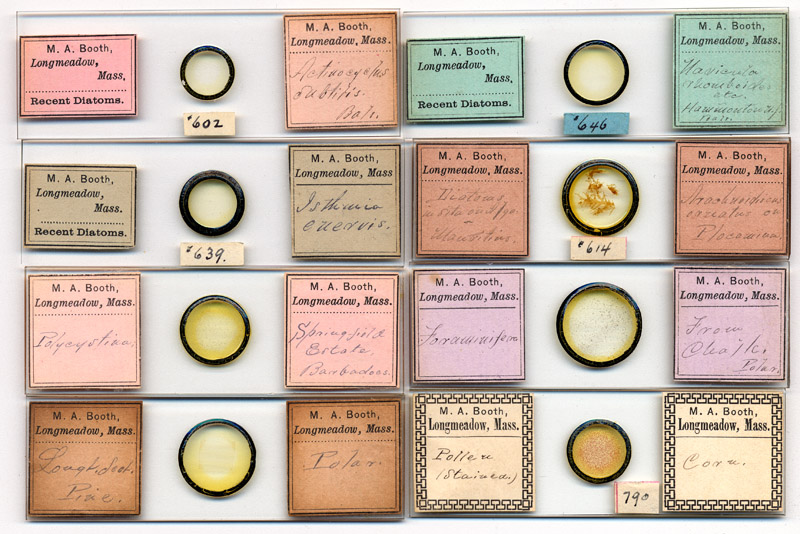 M. A. Booth,
Longmeadow,
Mass,
Recent Diatoms.
#602
M. A. Booth,
Longmeadow, Mass.
Actinocyclus
subtilis.
Bal.
M. A. Booth,
Longmeadow,
Mass.
Recent Diatoms.
#646
M. A. Booth,
Longmeadow, Mass.
Navicula
rhomboides
etc.
M. A. Booth,
Longmeadow,
Mass.
Recent Diatoms.
#639.
M. A. Booth,
Longmeadow, Mass.
Isthmia
enervis.
M. A. Booth,
Longmeadow, Mass.
Diatoms
Mauritius.
#614
M. A. Booth,
Longmeadow, Mass.
Arachnoidiscus
ornatus on
Plocamium
M. A. Booth,
Longmeadow, Mass.
Polycystina.
M. A. Booth,
Longmeadow, Mass.
Springfield
Estate,
Barbadoes.
M. A. Booth,
Longmeadow, Mass.
Foraminifera
M. A. Booth,
Longmeadow, Mass.
From
Chalk.
Polar.
M. A. Booth,
Longmeadow, Mass.
Longit. Sect.
Pine.
M. A. Booth,
Longmeadow, Mass.
Polar.
M. A. Booth,
Longmeadow, Mass.
Pollen
(Stained)
790
M. A. Booth,
Longmeadow, Mass.
Corn.